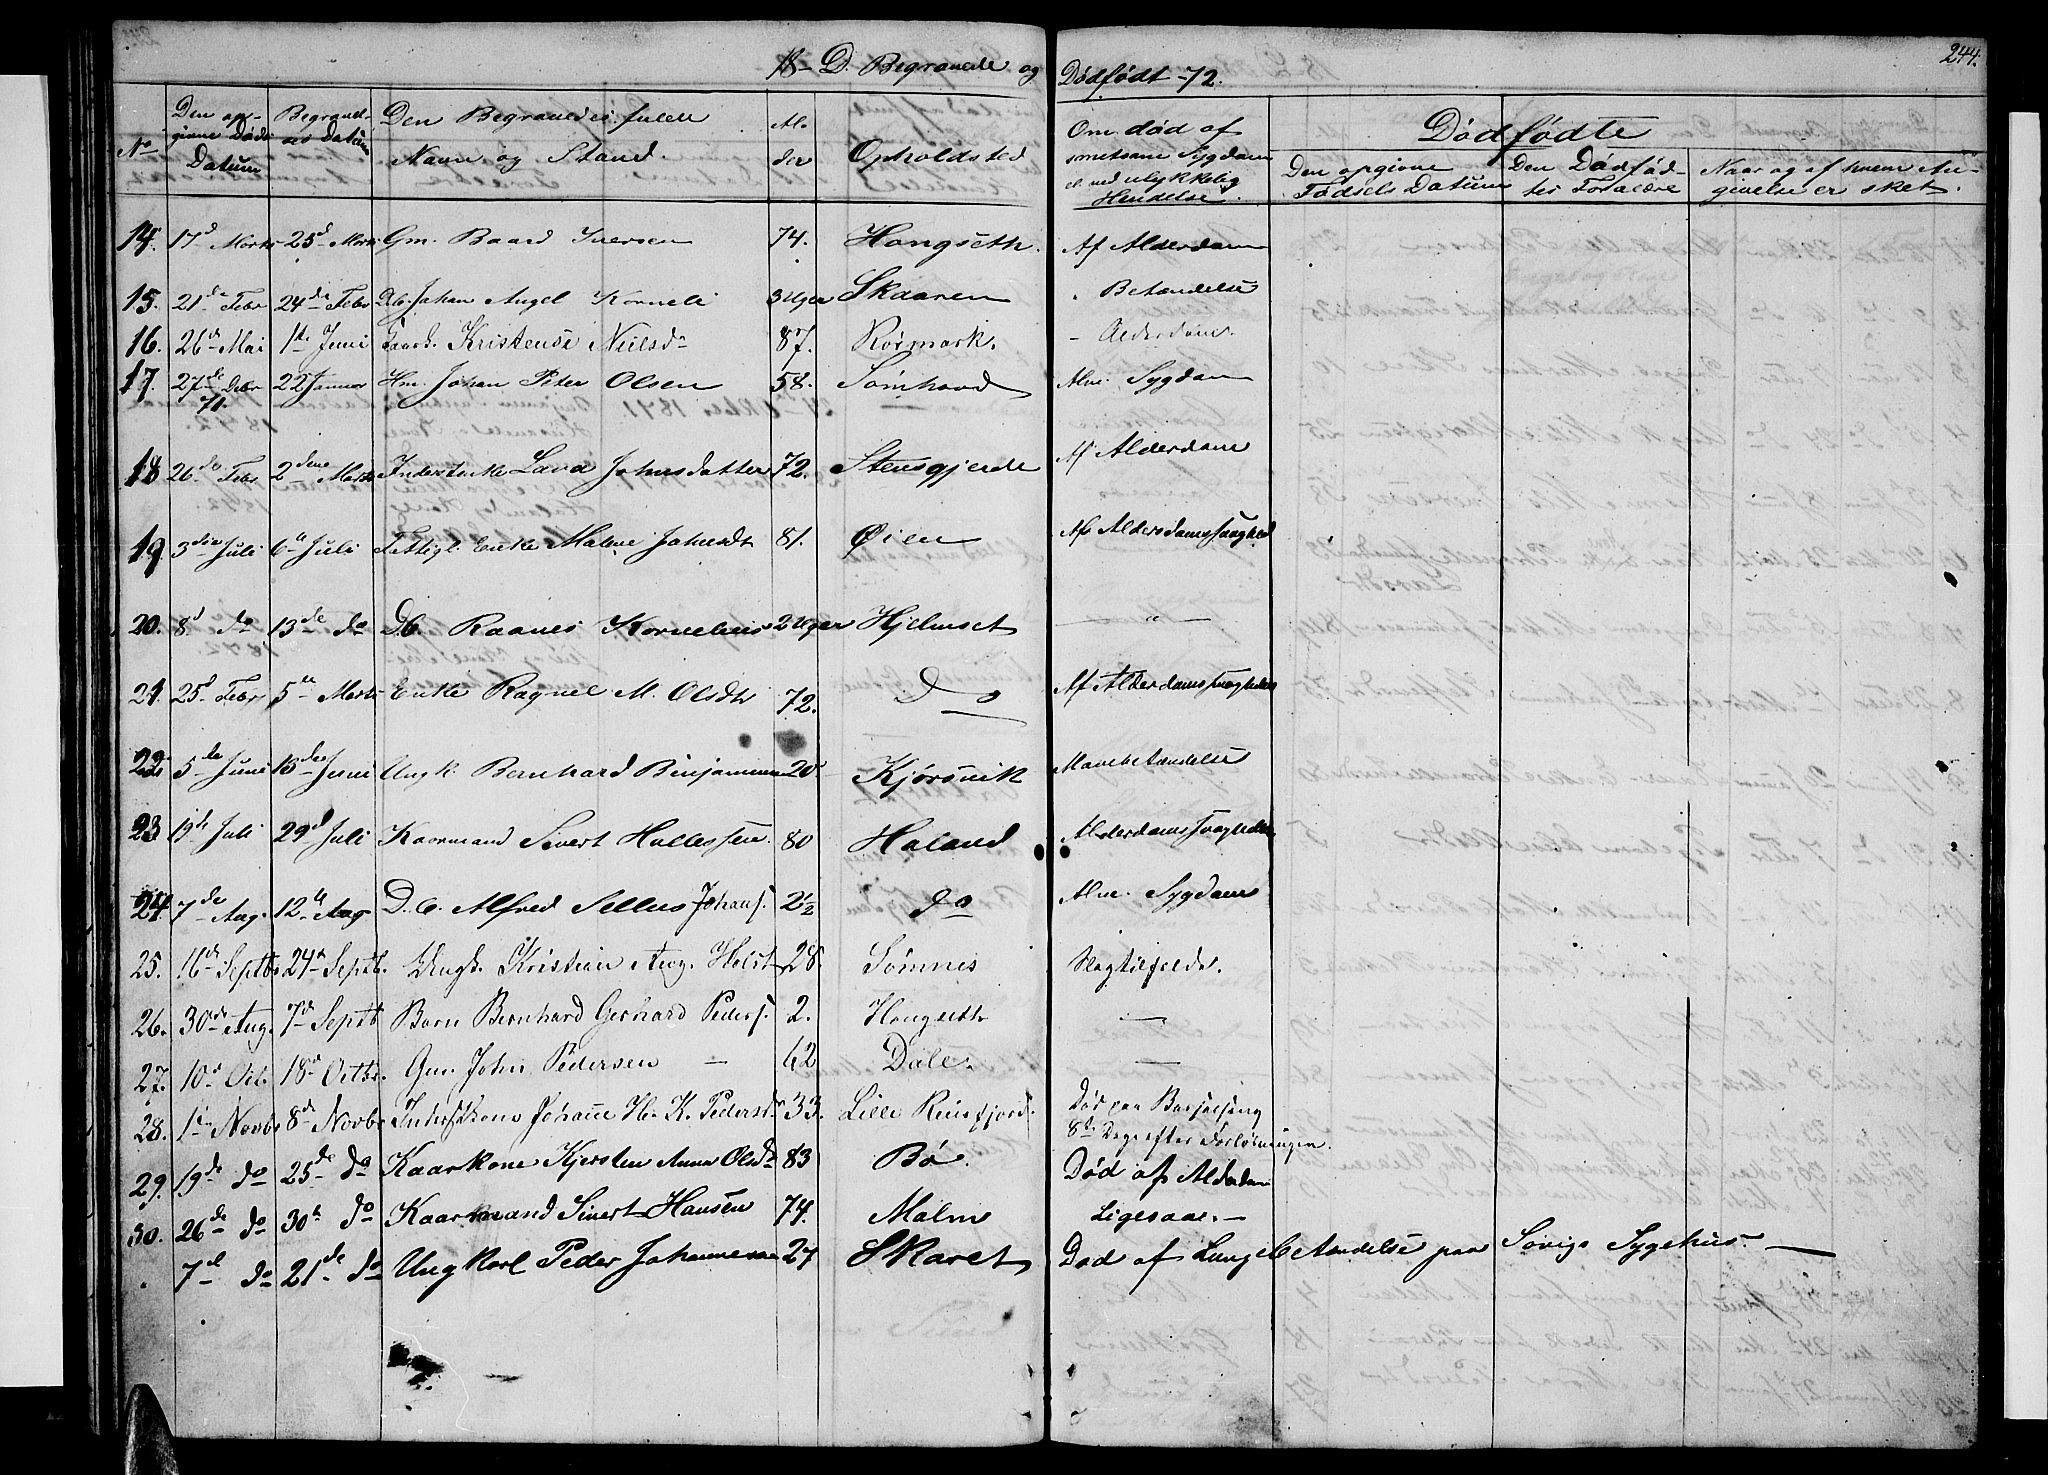 18- D. Begravede og Dødfødt -72.
244.
No
Den op-
givne Døds
Datum
Begravel-
ses Datum
Den Begravedes fulde
Navn og Stand.
Al-
der
Opholdsted
Om død af
smitsom Sygdom
el. ved ulykkelig
Hendelse.
Dødfødte
Den opgivne
Fødsels Datum
Den Dødfød-
tes Forældre
Naar og af hvem An-
givelse er sket.
14. 17d Marts 25d Marts Gm. Baard Iversen 74. Hongseth. Af Alderdom
15. 21de Febr 24de Febr D.b. Johan Angel Korneli 3 Uger Skaaren " Betændelse
16. 26de Mai 1ste Juni Kristense Nielsdr 87. Rørmark. - Alderdom.
17. 27de Debr 71. 22 Januar Hm. Johan Peter Olsen 58. Sømhovd Alm. Sygdom
18 26de Febr 2den Marts Inderstenke Lava Johnsdatter 72. Stensgjerde Af Alderdom
19 3die Juli 6te Juli Fattigl. Enke Malene Johnsdt 81. Øien Af Alderdomssvaghed
20. 8d do 13de do D.b. Raanes Kornelius 2 Uger Hjelmset — " —
21. 25d Febr 5te Marts Enke Ragnel M. Olsdtr 72. Do Af Alderdomssvaghed
22. 5de Juni 13de Juni Ungk. Bernhard Binjaminsen 20 Kjørsvik Mavebetændelse
23 19de Juli 29d Juli Kaarmand Sivert Hallessen. 80 Holand Alderdomssvaghed
24. 7de Aug. 12te Aug D.b. Alfred Sellius Johans. 2½ do Alm. Sygdom
25. 16de Septb. 24de Septb. Ungk. Kristian Aug. Holst 28. Sømnes Slagtilfelde.
26. 30de Aug. 7de Septb Barn Bernhard Gerhard Peders. 2. Hongseth —
27. 10d Oct. 18d Octbr. Gm. John Pedersen — 62 Dale. —
28. 1ste Novbr 8de Novbr Inderstkone Johanne H. K. Pedersdr 33. Lille Reinfjord. Død paa Barselseng
8de Dag efter Forløsningen.
29. 19de do 25de do Kaarkone Kjersten Anna Olsdr 83 Bø. Død af Alderdom
30. 26de do 30te do Kaarmand Sivert Hansen 74. Malm Ligesaa. —
7de do 21de do Ung Karl Peder Johannesen 27 Skaret Død af Lungebetændelse paa Søvigs Sygehus. —